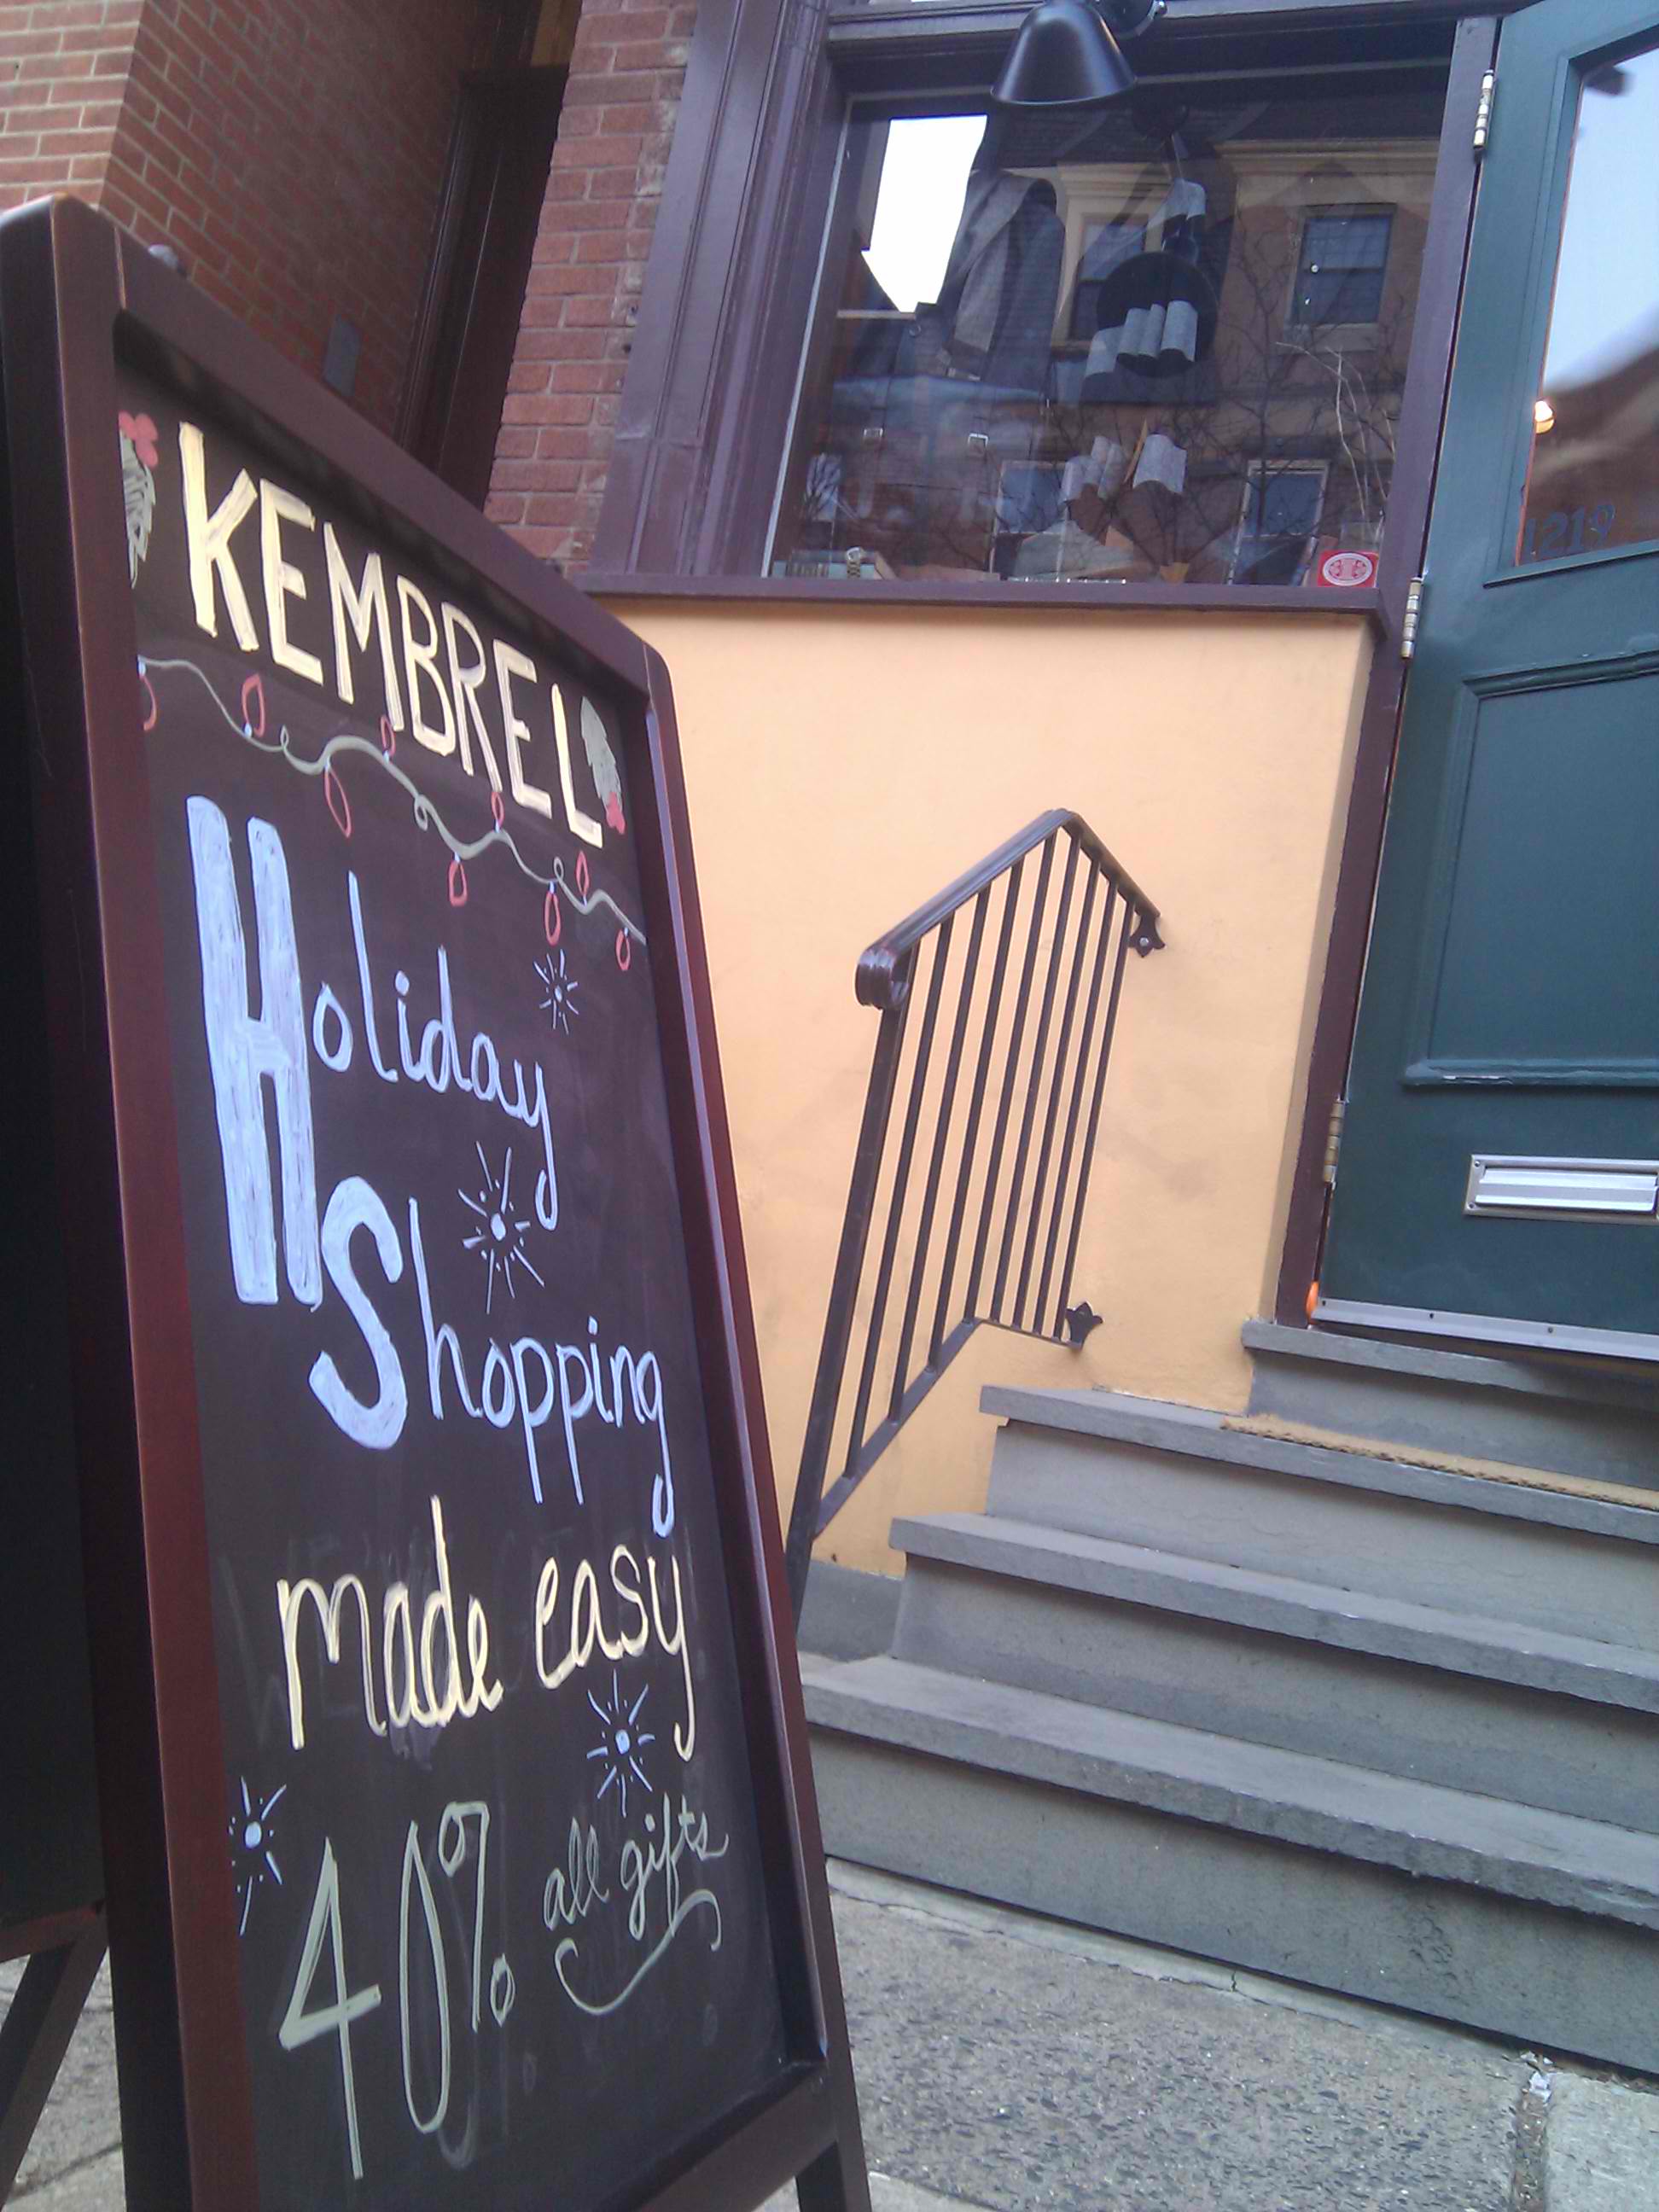 KEMBREL
Holiday
Shopping
made easy
40% all gifts